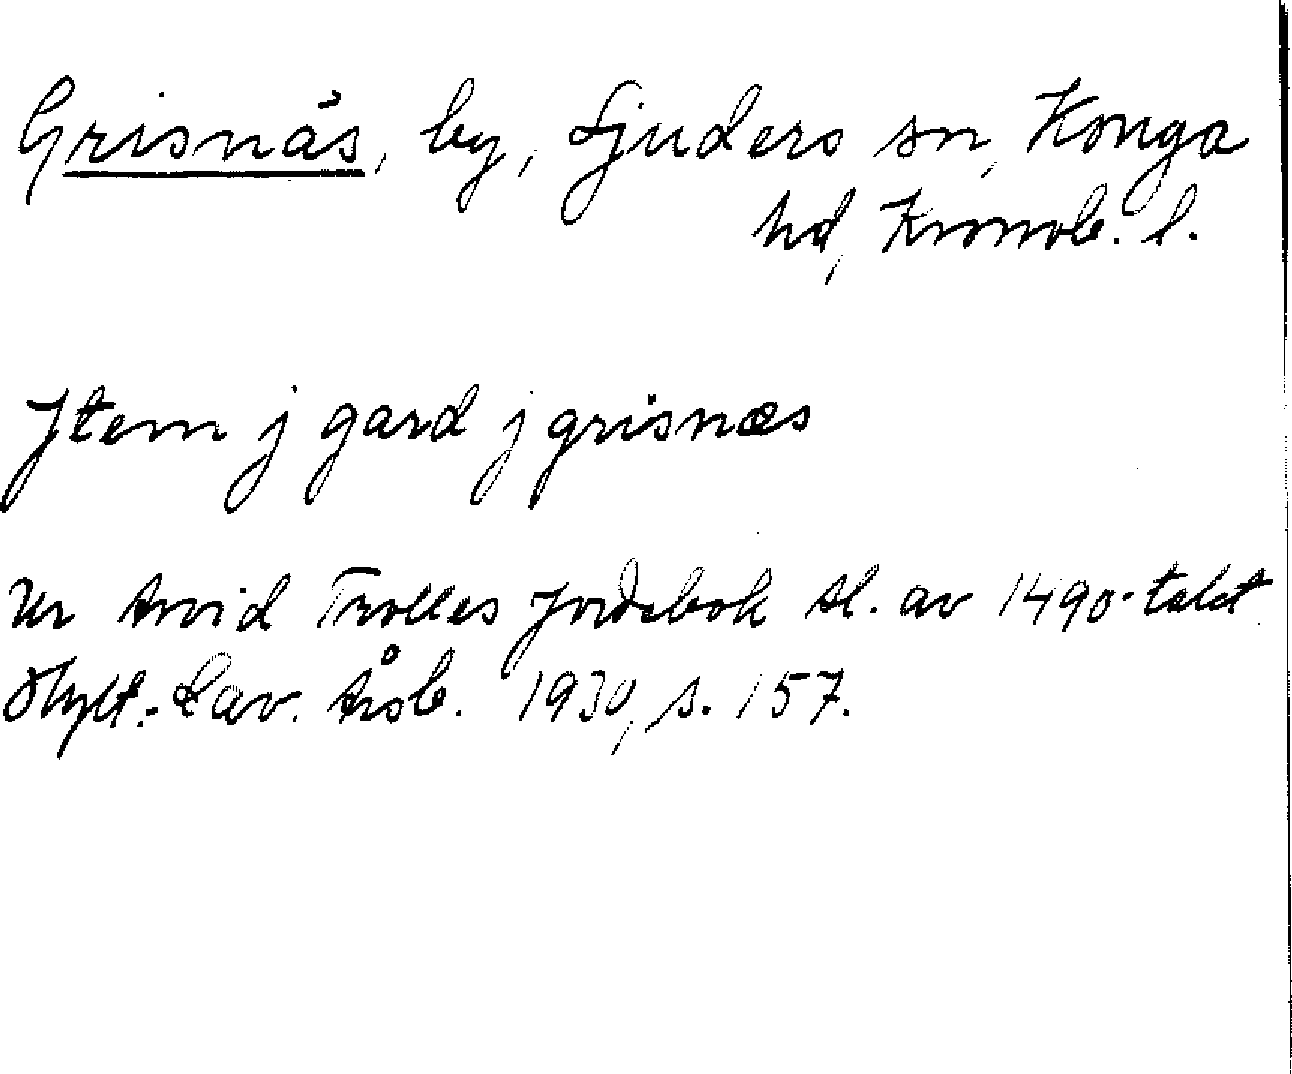 Grisnäs, by, Ljuders sn, Konga
hd, Kronob. l.
Jtem j gard j grisnæs
Ur Arvid Trolles jordebok sl. av 1490-talet.
Hylt.-Cav. Årsb. 1930, s. 157.